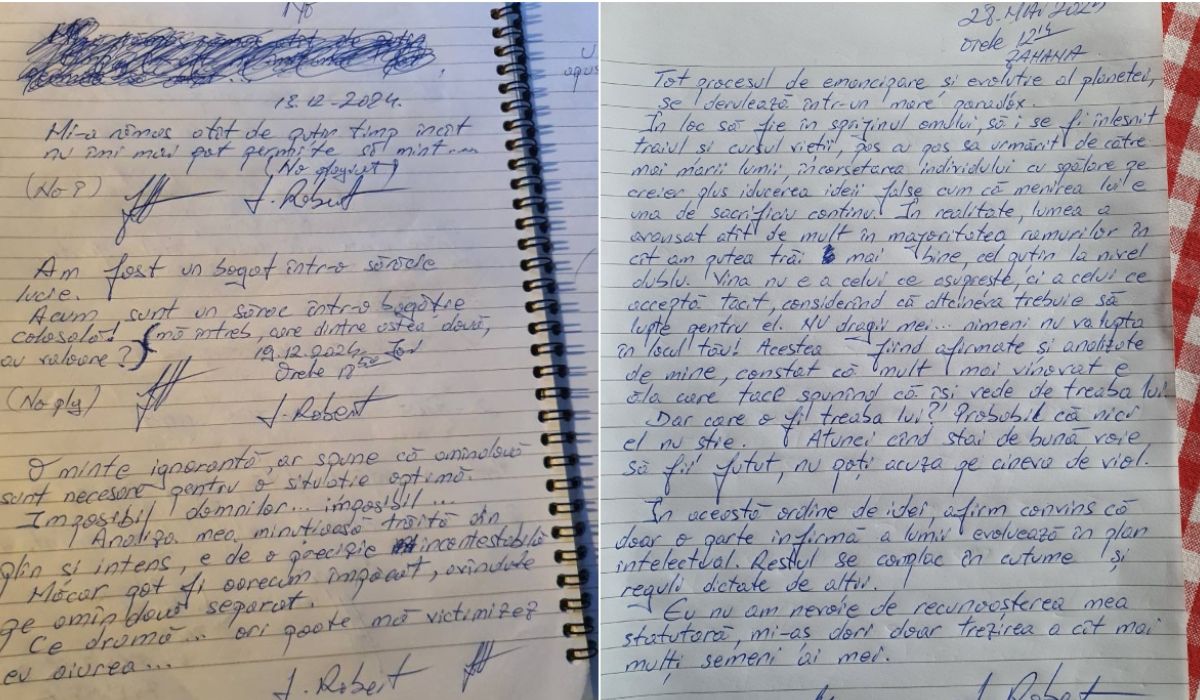 No
13.12-2024.
Mi-a rămas atît de puțin timp încît
nu îmi mai pot permite să mint....
(No plagiat)
(No?) J. Robert
Am fost un bogat într-o sărăcie
lucie.
Acum sunt un sărac într-o bogăție
colosală! (mă întreb, care dintre astea două,
au valoare?)
19.12.2024 Joi
Orele
(No ply) J. Robert
O minte ignorantă, ar spune că amîndouă
sunt necesare pentru o situație optimă.
Imposibil domnilor... imposibil...
Analiza mea, minuțioasă trăită din
plin si intens, e de o precizie incontestabilă
Măcar pot fi oarecum împăcat, avîndule
pe amîndouă separat.
Ce dramă... ori poate mă victimizez
eu aiurea...
J. Robert
28. MAI 2025
Orele 12
ZAHANIA
Tot procesul de emancipare și evoluție al planetei,
se derulează într-un mare paradox.
În loc să fie în sprijinul omului, să i se fi înlesnit
traiul si cursul vieții, pas cu pas sa urmărit de către
mai marii lumii, încorsetarea individului cu spălare pe
creier plus iducerea ideii false cum că menirea lui e
una de sacrificiu continu. În realitate, lumea a
avansat atît de mult în majoritatea ramurilor în
cît am putea trăi mai bine, cel puțin la nivel
dublu. Vina nu e a celui ce asuprește, ci a celui ce
acceptă tacit, considerînd că altcineva trebuie să
lupte pentru el. NU dragii mei... nimeni nu va lupta
în locul tău! Acestea fiind afirmate și analizate
de mine, constat că mult mai vinovat e
ăla care tace spunînd că își vede de treaba lui.
Dar care o fi treaba lui?! Probabil că nici
el nu știe. Atunci cînd stai de bună voie,
să fii futut, nu poți acuza pe cineva de viol.
În această ordine de idei, afirm convins că
doar o parte infirmă a lumii evoluează în plan
intelectual. Restul se complac în cutume și
reguli dictate de alții.
Eu nu am nevoie de recunoașterea mea
statutară, mi-as dori doar trezirea a cît mai
mulți semeni ai mei.
J. Robert